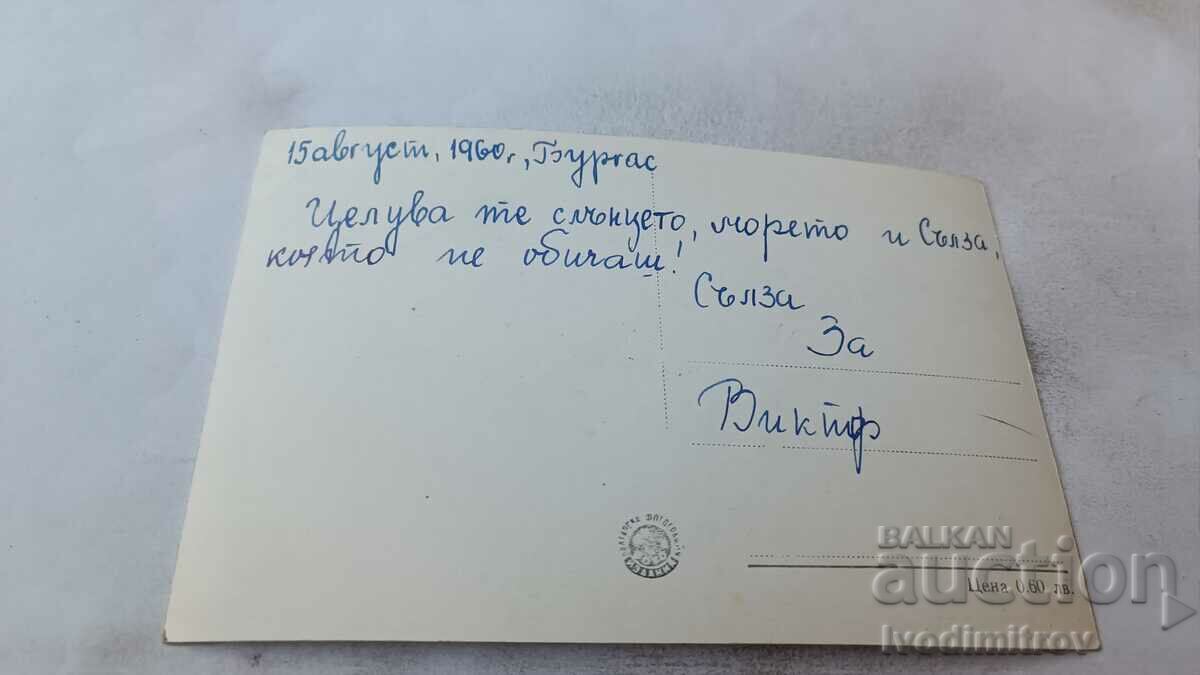 15 август, 1960 г., Бургас
Целува те слънцето, морето и Сълза,
която не обичаш!
Сълза
За
Виктор
Цена 0.60 лв.
BALKAN
auction
Ivodimitrov